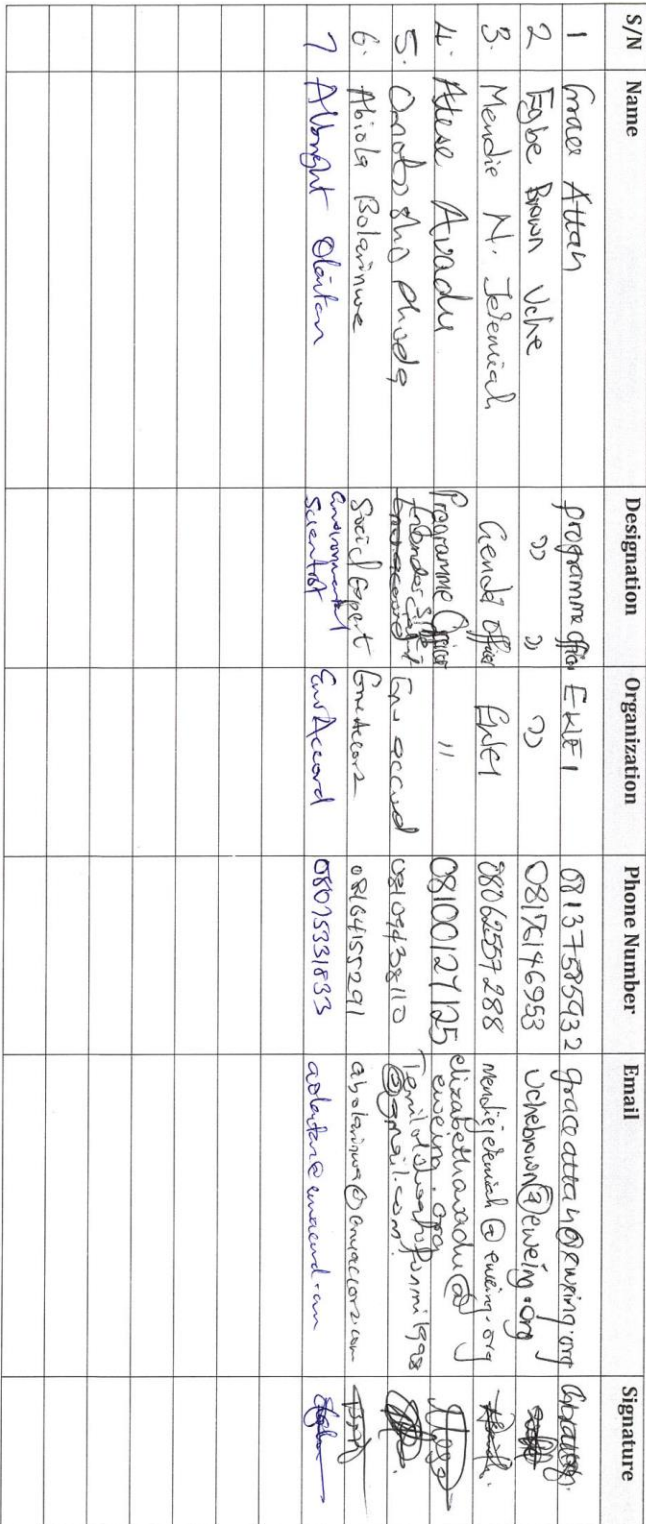 S/N Name Designation Organization Phone Number Email Signature
1 Grace Attah programme officer EWEI 08137585932 graceattah@eweing.org
2 Egbe Brown Uche " " " 08176146953 Uchebrown@eweing.org
3. Mendie N. Jeremiah Gender officer EWEI 08062557288 mendiejeremiah@eweing.org
4. Atese Avadu Programme Officer " 08100127125 elizabethavadu@
eweing.org
5. Env accord 08109438110
@gmail.com
6. Abiola Bolarinwa Social Expert EnvAccord 08164155291 abolarinwa@envaccord.com
7 Albright Olaitan Environmental
Scientist EnvAccord 08075331833 aolaitan@envaccord.com